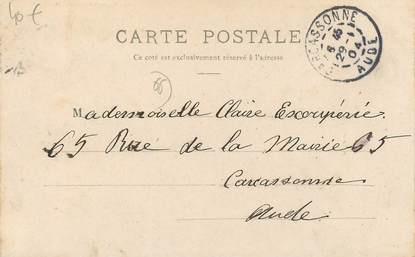 40 €
CARTE POSTALE
Ce côté est exclusivement réservé à l'adresse
CARCASSONNE
29
04
AUDE
Mademoiselle Claire Escoupérie.
65 Rue de la Mairie 65
Carcassonne
Aude.